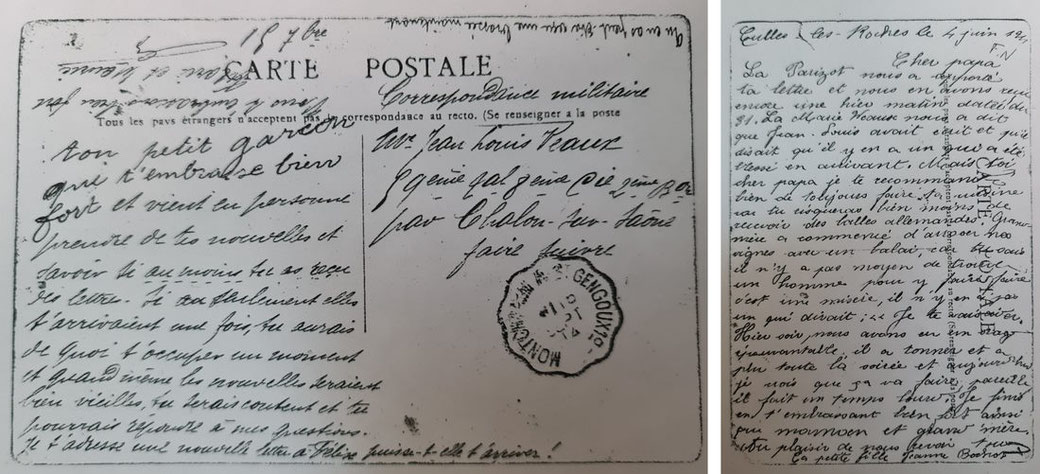 15 7bre
CARTE POSTALE
Correspondance militaire
Tous les pays étrangers n'acceptent pas de correspondance au recto. (Se renseigner à la poste
ton petit garçon
qui t'embrasse bien
fort et vient en personne
prendre de tes nouvelles et
savoir si au moins tu as reçu
des lettres. Si seulement elles
t'arrivaient une fois, tu aurais
de quoi t'occuper un moment
et quand même les nouvelles seraient
bien vieilles, tu serais content et tu
pourrais répondre à mes questions.
Je t'adresse une nouvelle lettre à Félixe puisse-t-elle t'arriver !
Mr Jean Louis Veaux
par Chalon-sur-Saône
faire suivre
MONTCH ST GENGOUX
Culles les-Roches le 4 juin
Cher papa
La Parizot nous a apporté
ta lettre et nous en avons reçu
encore une hier matin datée du
31. La Marie Veaux nous a dit
que Jean-Louis avait écrit et qu'il
disait qu'il y en a un qui a été
blessé en arrivant. Mais toi
cher papa je te recommande
bien de toujours faire ta cuisine
car tu risqueras bien moins de
recevoir des balles allemandes. Grand-
mère a commencé d'arroser nos
vignes avec un balai, car tu sais
il n'y a pas moyen de trouver
un homme pour y faire faire
c'est une misère, il n'y en a pas
un qui dirait : "Je te
Hier soir nous avons eu un orage
épouvantable, il a tonné et a
plu toute la soirée et aujourd'hui
je vois que ça va faire pareille
il fait un temps lourd. Je finis
en t'embrassant bien fort ainsi
que maman et grand mère
au plaisir de nous revoir tous
Ta petite fille Jeanne
CARTE POSTALE